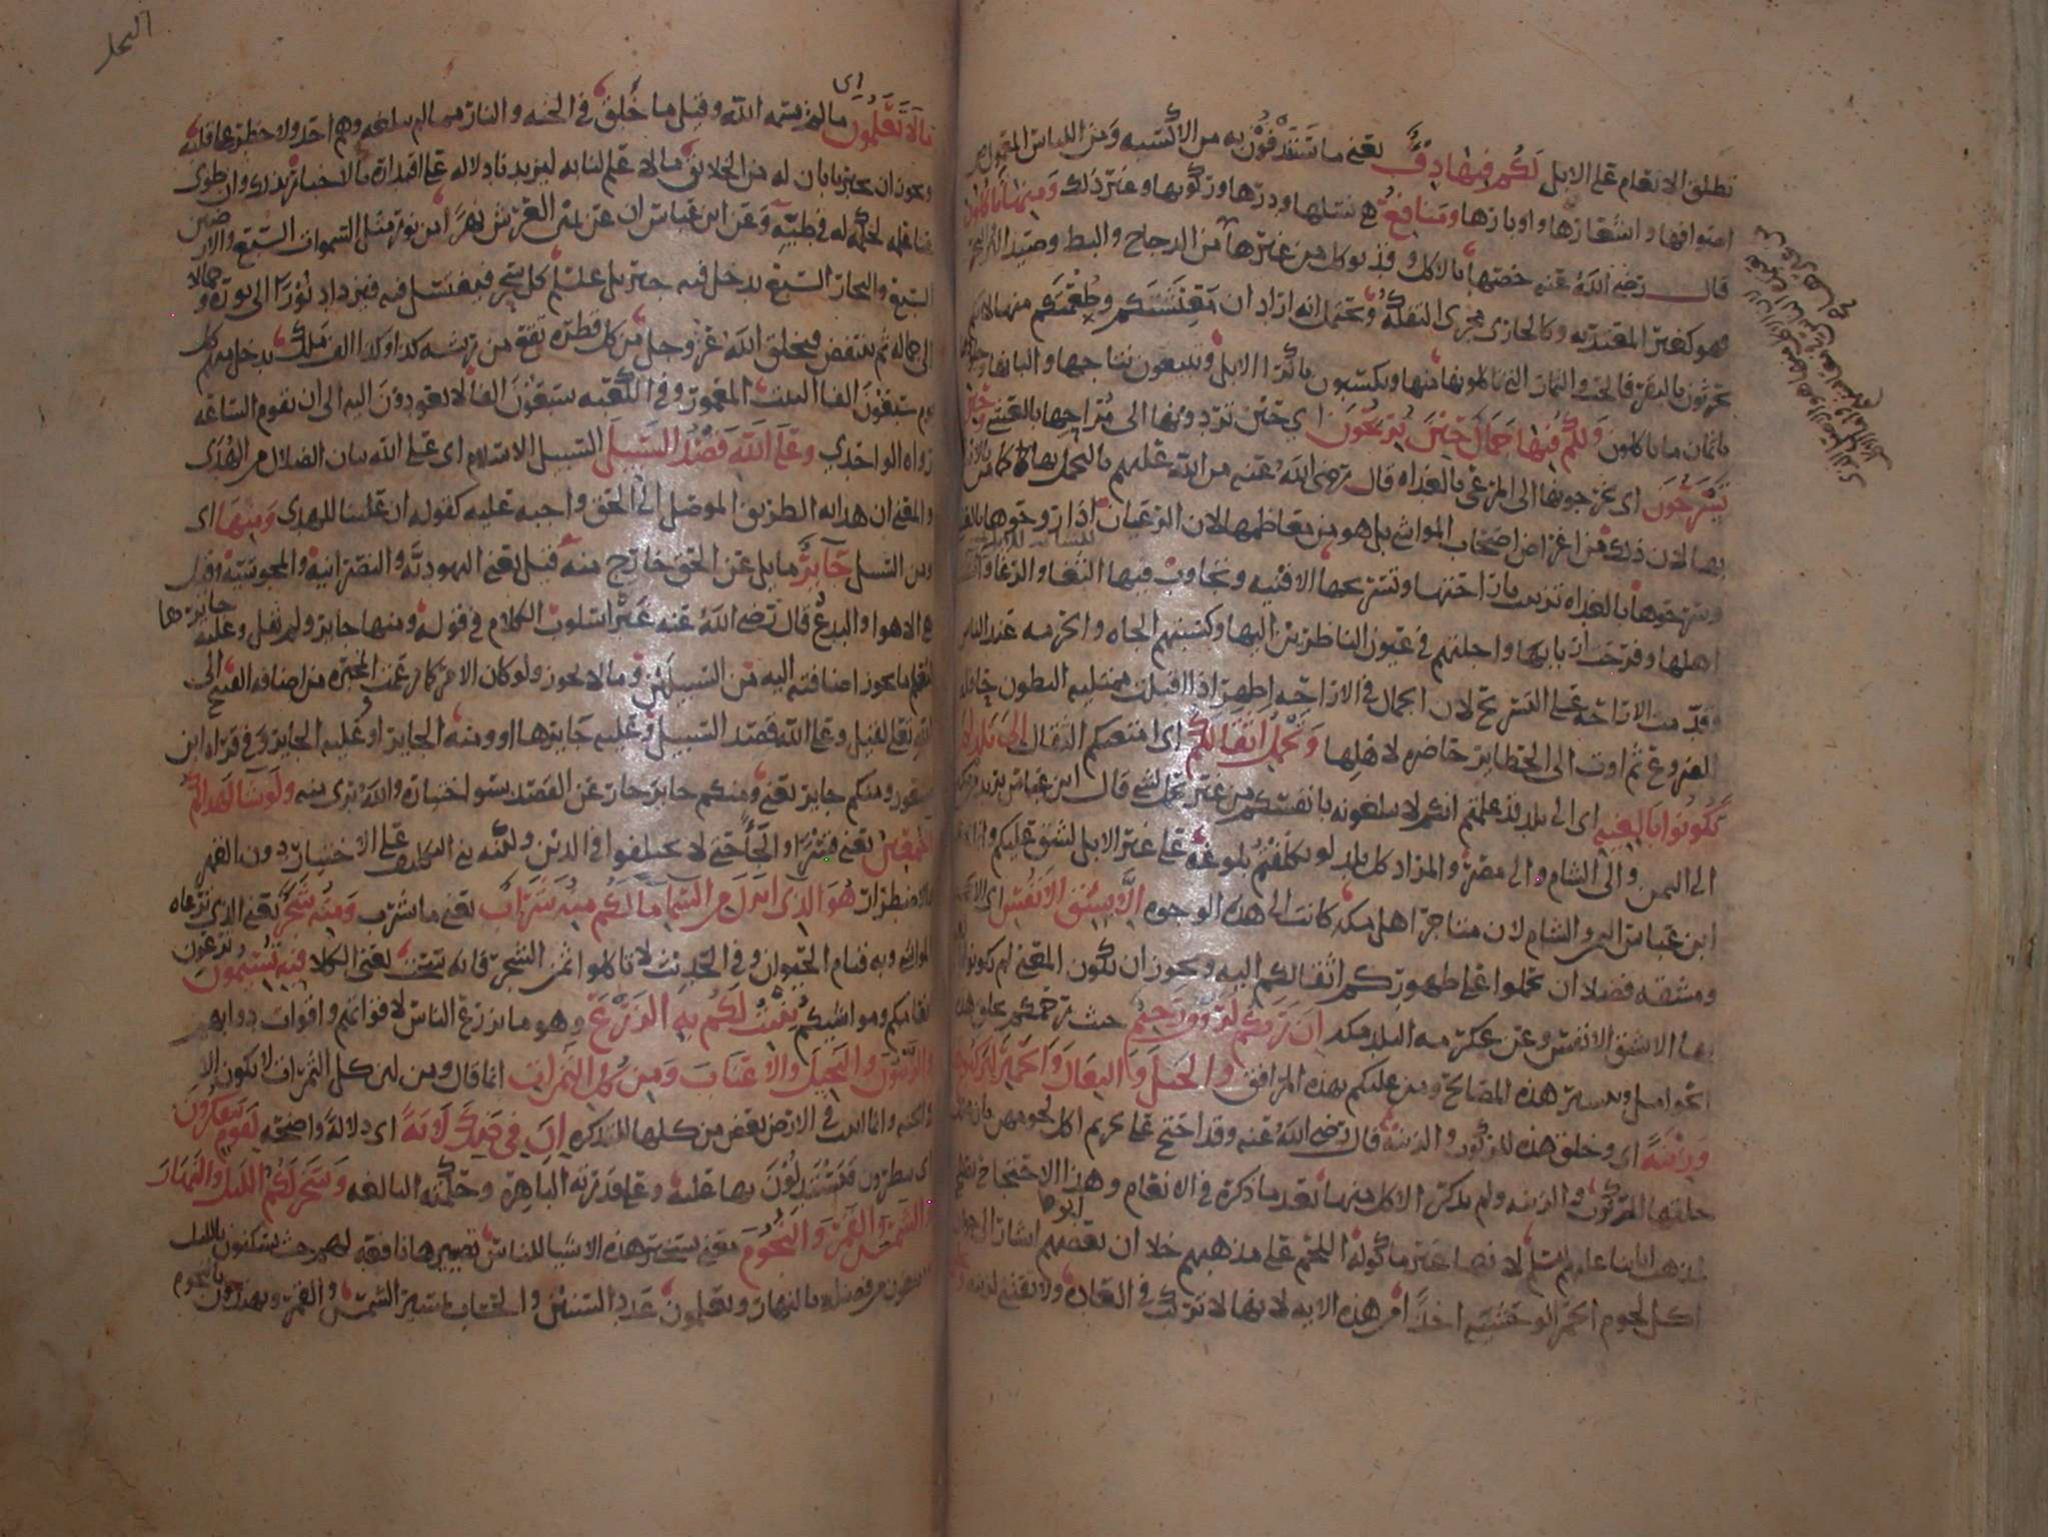 تطلق الانعام على الابل لكم فيها دفء يعني ما تستدفئون به من الاكسية ومن اللباس المعمول من
اصوافها واشعارها واوبارها ومنافع هي نسلها ودرها وركوبها وغير ذلك ومنها تأكلون
قال رضي الله عنه خصتها بالاكل وقد يوكل من غيرها من الدجاج والبط وصيد البر والبحر
فهو كغير المعتد به وكالجاري مجرى التفكه ويحتمل انه اراد ان معيشتكم وطعمتكم منها لانكم
تحرثون بالبقر فالحب والثمار التي تاكلونها منها وتكتسبون باكرا الابل وتبيعون نتاجها والبانها وجلودها
باثمان ما تاكلون ولكم فيها جمال حين تريحون اي حين تردونها الى مراحها بالعشي وحين
تسرحون اي تخرجونها الى المرعى بالغداه قال رضي الله عنه من الله عليهم بالتجمل بها كما من بالانتفاع
بها لان ذلك من اغراض اصحاب المواشي بل هو من معاظمها لان الرعيان اذا روحوها بالعشي
وسرحوها بالغداه تزينت باراحتها وتسريحها الافنيه وتجاوب فيها الثغا والرغا وانست
اهلها وفرحت اربابها واجلتهم في عيون الناظرين اليها وكسبتهم الجاه والحرمه عند الناس
وقدمت الاراحه على التسريح لان الجمال في الاراحه اظهر اذا اقبلت ممتليه البطون حافله
الضروع ثم اوت الى الحظاير حاضره لاهلها وتحمل اثقالكم اي امتعتكم الثقال الى بلد لم
تكونوا بالغيه اي الى بلد قد علمتم انكم لا تبلغونه بانفسكم من غير حمل شي قال ابن عباس يريد من مكه
الى اليمن والى الشام والى مصر والمراد كل بلد لو تكلفتم بلوغه على غير الابل لشق عليكم وانما خص
ابن عباس اليمن والشام لان متاجر اهل مكه كانت الى هذه الوجوه الا بشق الانفس اي الا بجهد
ومشقه فضلا ان تحملوا على ظهوركم اثقالكم اليه ويجوز ان يكون المعنى لم تكونوا بالغيه
بها الا بشق الانفس وعن عكرمه البلد مكه ان ربكم لرؤوف رحيم حيث رحمكم بخلق هذه
الحوامل وتيسير هذه المصالح ومن عليكم بهذه المرافق والخيل والبغال والحمير لتركبوها
وزينة اي وخلق هذه للركوب والزينه قال رضي الله عنه وقد احتج على تحريم اكل لحومهن بان علل
خلقها بالركوب والزينه ولم يذكر الاكل منها بعد ما ذكره في الانعام وهذا الاحتجاج يقضي
لمذهب ابائنا عليهم السلم لانها غير ماكوله اللحم على مذهبهم خلا ان بعضهم اشار الى جواز
اكل لحوم الحمر الوحشيه اخذا من هذه الايه لانها لا تركب في العاده ولا تقتنى لزينه
النحل
ما لا تعلمون اي ما لم يسمه الله وقيل ما خلق في الجنه والنار مما لم يبلغه وهم احد ولا خطر على قلبه
ويجوز ان يخبرنا بان له من الخلائق ما لا علم لنا به ليزيدنا دلاله على اقتداره بالاخبار بذلك وان طوى
عنا علمه لحكمه له في طيه وعن ابن عباس ان عن يمين العرش نهرا من نور مثل السموات السبع والارضين
السبع والبحار السبع يدخل فيه جبريل عليه السلم كل سحر فيغتسل فيه فيزداد نورا الى نوره وجمالا
الى جماله ثم ينتفض فيخلق الله عز وجل من كل قطره تقع من ريشه كذا وكذا الف ملك يدخل منهم كل
يوم سبعون الفا البيت المعمور وفي الكعبه سبعون الفا لا يعودون اليه الى ان تقوم الساعه
رواه الواحدي وعلى الله قصد السبيل السبيل الاسلام اي على الله بيان الضلال من الهدى
والمعنى ان هدايه الطريق الموصل الى الحق واجبه عليه كقوله ان علينا للهدى ومنها اي
ومن السبل جائر مايل عن الحق خارج منه قيل يعني اليهوديه والنصرانيه والمجوسيه وقيل
هي الاهوا والبدع قال رضي الله عنه غير اسلوب الكلام في قوله ومنها جاير ولم يقل وعليه جايرها
ليعلم ما يجوز اضافته اليه من السبيلين وما لا يجوز ولو كان الامر كما زعمت المجبره من اضافه القبيح الى
الله تعالى لقيل وعلى الله قصد السبيل وعليه جايرها او ومنه الجاير او عليه الجاير وفي قراه ابن
مسعود ومنكم جاير يعني ومنكم جاير حار عن القصد بسو اختياره والله بري منه ولو شا لهداكم
اجمعين يعني قسرا والجأ حتى لا تختلفوا في الدين ولكنه بنى التكليف على الاختيار دون القهر
والاضطرار هو الذي انزل من السما ما لكم منه شراب يعني ما شرب ومنه شجر يعني الذي ترعاه
المواشي وبه قيام الحيوان وفي الحديث لا تاكلوا ثمن الشجر فانه سحت يعني الكلا فيه تسيمون ترعون
انعامكم ومواشيكم ينبت لكم به الزرع وهو ما يزرع الناس لاقواتهم واقوات دوابهم
والزيتون والنخيل والاعناب ومن كل الثمرات انما قال ومن لان كل الثمرات لا يكون الا
في الجنه وانما انبت في الارض بعض من كلها للتذكره ان في ذلك لآية اي دلاله واضحه لقوم يتفكرون
اي ينظرون فيستدلون بها عليه وعلى قدرته الباهره وحكمته البالغه وسخر لكم الليل والنهار
والشمس والقمر والنجوم معنى تسخير هذه الاشيا للناس تصييرها نافعه لهم حيث يسكنون بالليل
ويبتغون من فضله بالنهار ويعلمون عدد السنين والحساب بمسير الشمس والقمر ويهتدون بالنجوم